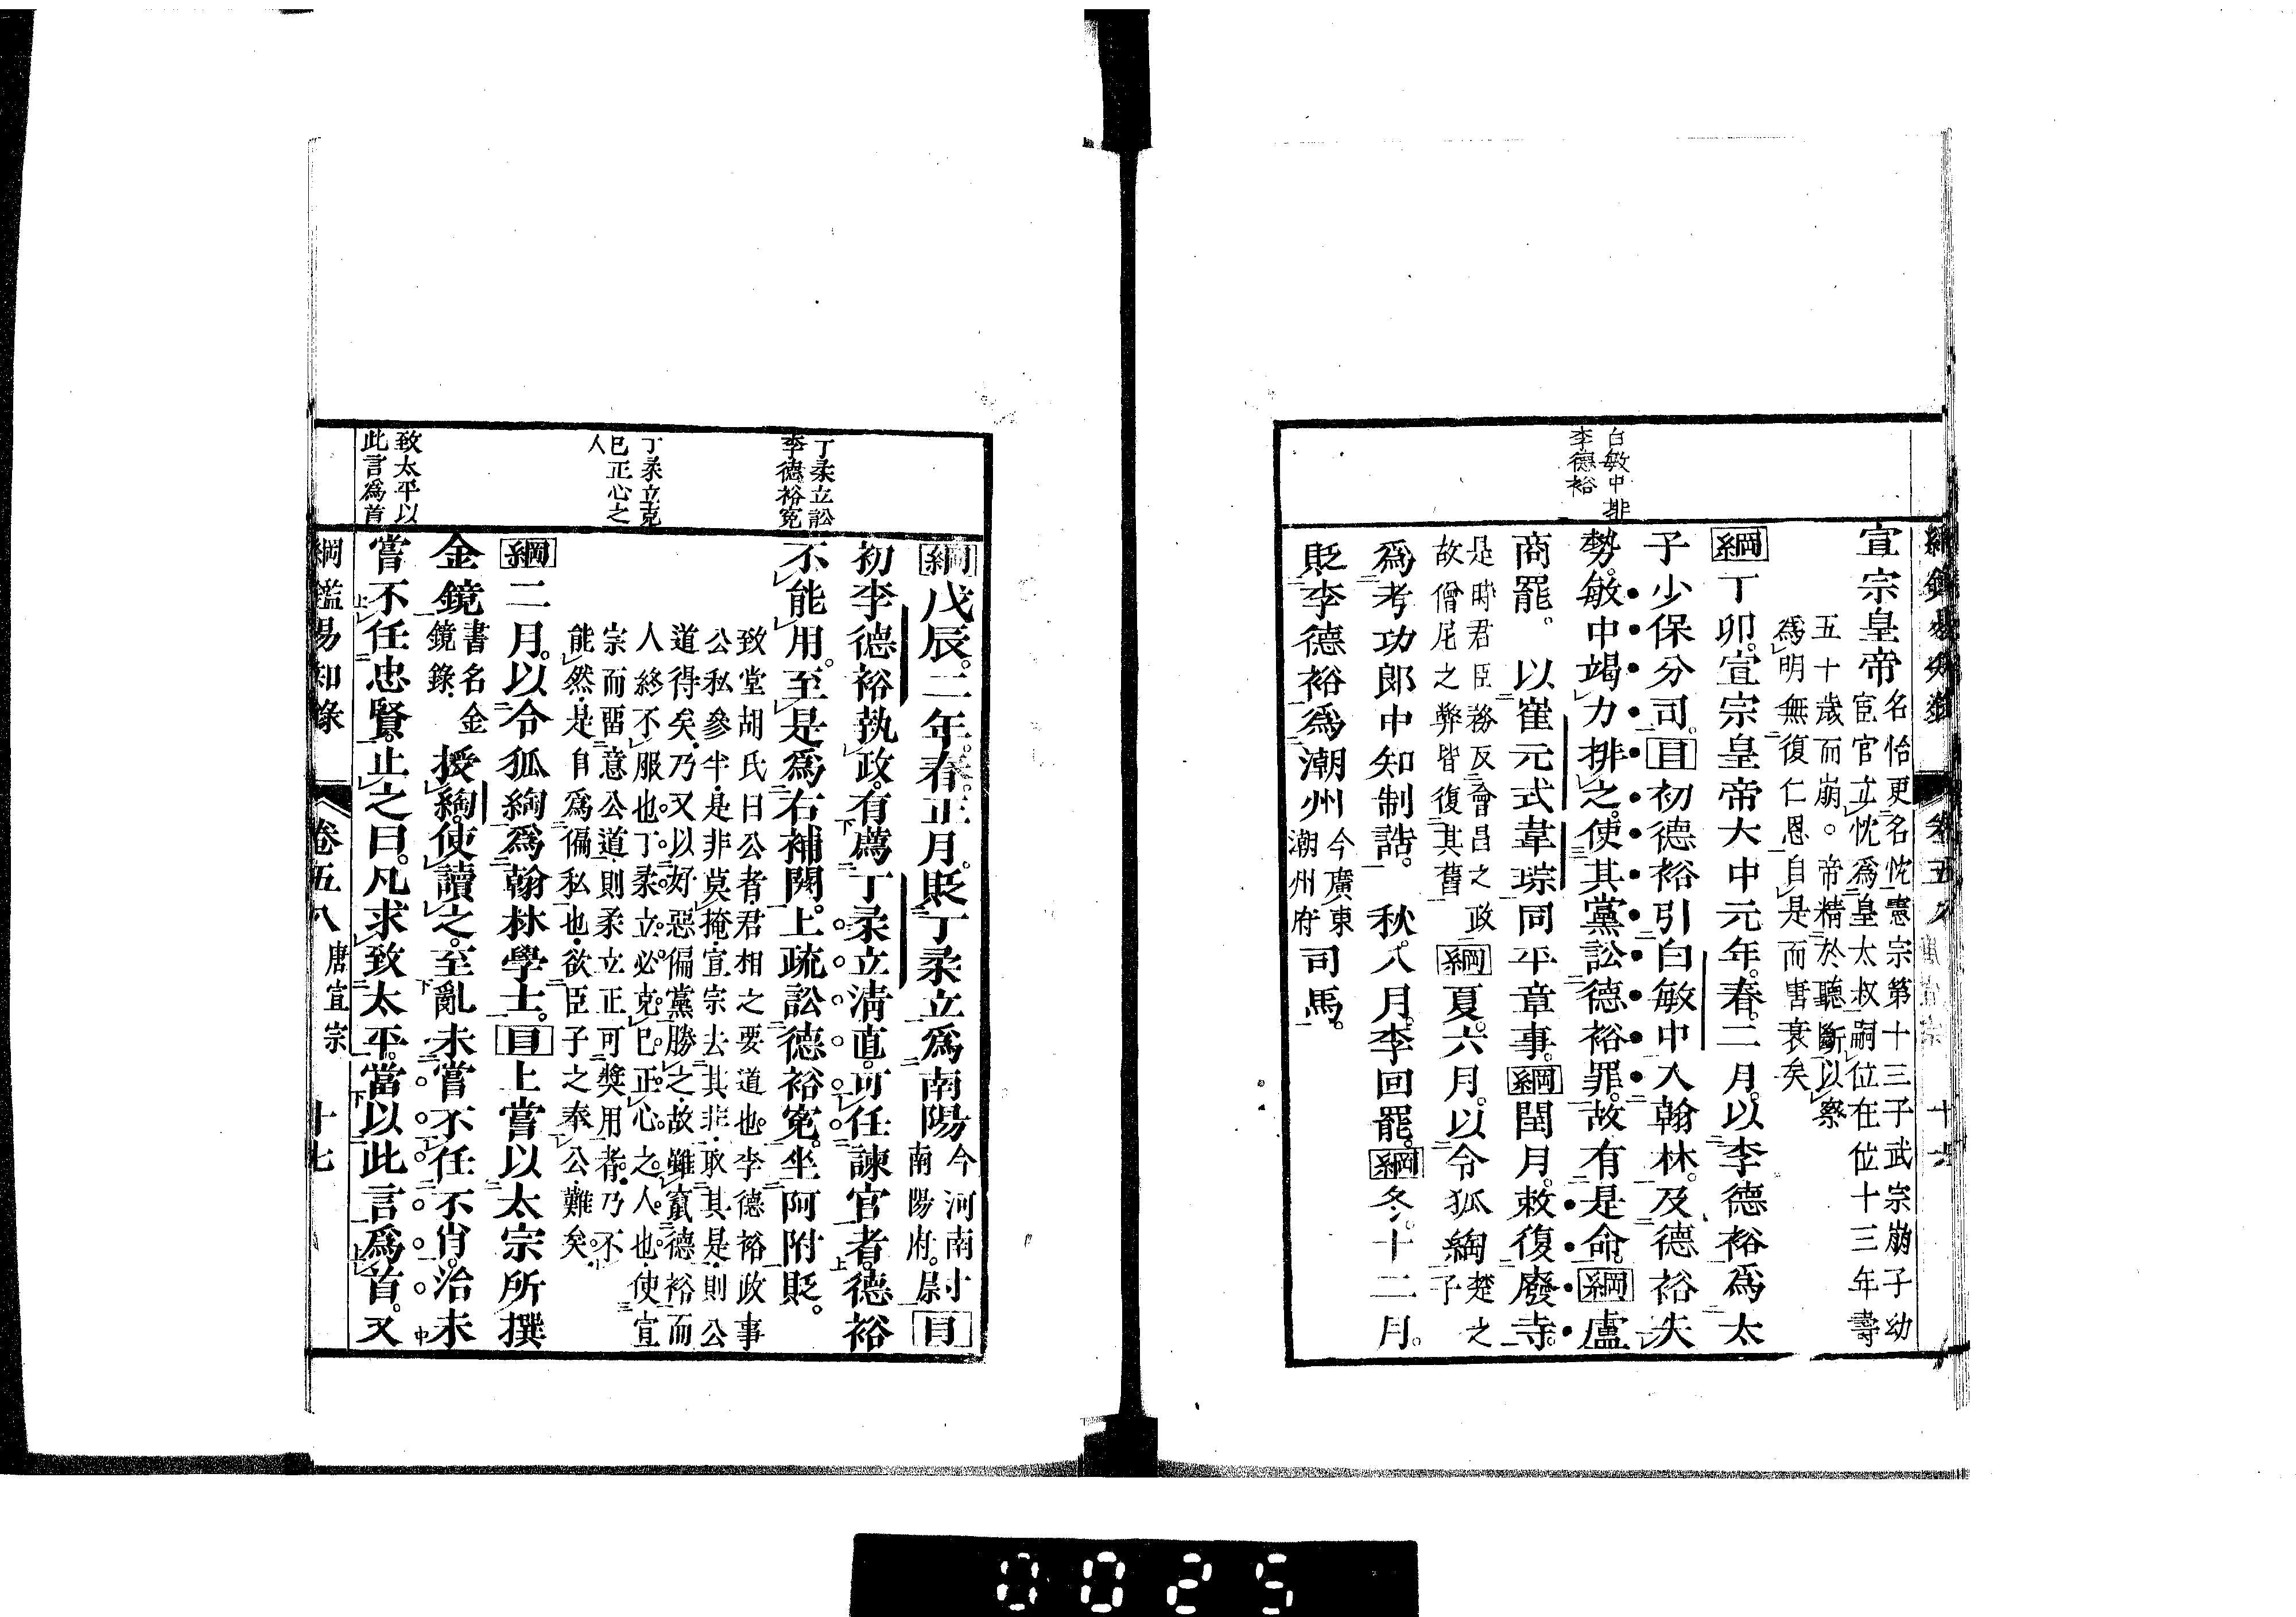 白敏中排
李德裕
宣宗皇帝
名怡更名忱憲宗第十三子武宗崩子幼
宦官立忱爲皇太叔嗣位在位十三年壽
五十歲而崩。帝精於聽斷以察
爲明無復仁恩自是而唐衰矣
綱丁卯。宣宗皇帝大中元年。春。二月。以李德裕爲太
子少保分司。目初德裕引白敏中入翰林。及德裕失
勢。敏中竭力排之。使其黨訟德裕罪。故有是命。綱盧
商罷。以崔元式韋琮同平章事。綱閏月。敕復廢寺。
是時君臣務反會昌之政
故僧尼之弊皆復其舊
綱夏。六月。以令狐綯
楚之
子
爲考功郎中知制誥。秋。八月。李回罷。綱冬。十二月。
貶李德裕爲潮州
今廣東
潮州府
司馬。
丁柔立訟
李德裕冤
丁柔立克
已正心之
人
致太平以
此言爲首
綱戊辰。二年。春。正月。貶丁柔立爲南陽
今河南
南陽府。
尉目
初李德裕執政。有薦丁柔立清直。可任諫官者。德裕
不能用。至是爲右補闕。上疏訟德裕冤。坐阿附貶。
致堂胡氏曰公者君相之要道也。李德裕政事
公私參半。是非莫掩。宣宗去其非。取其是。則公
道得矣。乃又以好惡偏黨勝之。故雖竄德裕而
人終不服也。丁柔立。必克已正心之人也。使宣
宗而畱意公道。則柔立正可獎用者。乃不
能然。是自爲偏私也。欲臣子之奉公。難矣。
綱二月。以令狐綯爲翰林學士。目上嘗以太宗所撰
金鏡
書名金
鏡錄。
授綯。使讀之。至亂未嘗不任不肖。治未
嘗不任忠賢。止之曰。凡求致太平。當以此言爲首。又
綱鑑易知錄
卷五八
唐宣宗
十七